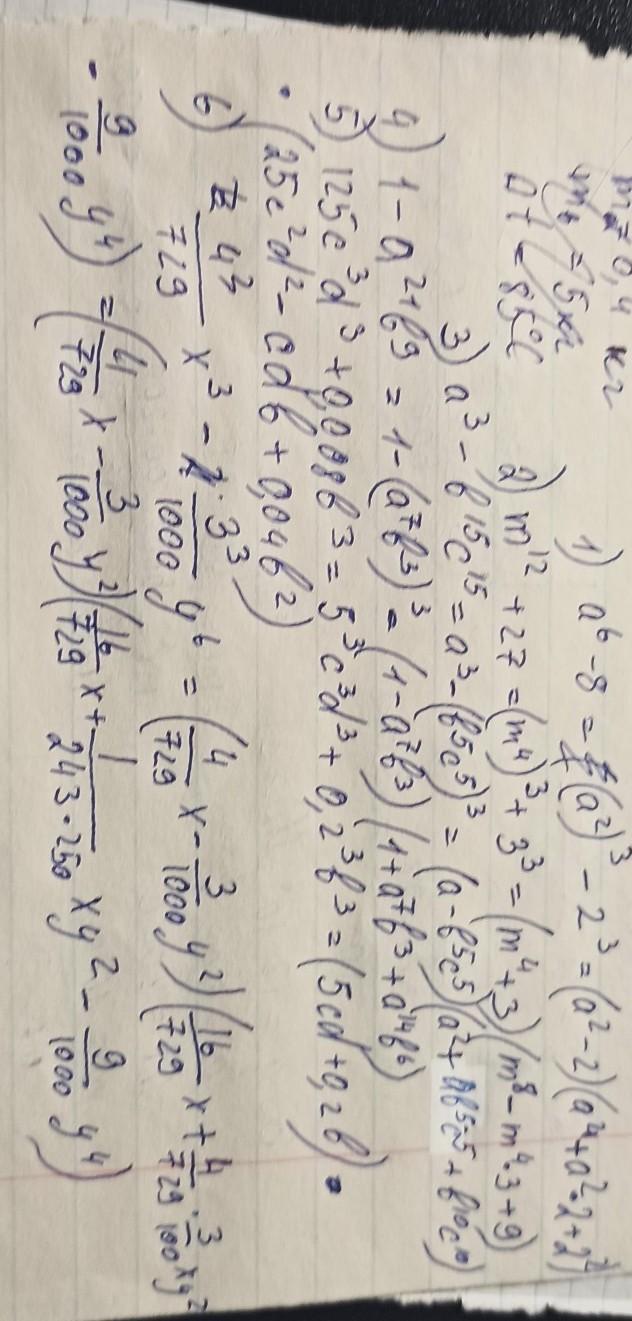 m = 0,4 кг
Δt = 85°C
1) a⁶ - 8 = (a²)³ - 2³ = (a² - 2)(a⁴ + a²·2 + 2²)
2) m¹² + 27 = (m⁴)³ + 3³ = (m⁴ + 3)(m⁸ - m⁴·3 + 9)
3) a³ - b¹⁵c¹⁵ = a³ - (b⁵c⁵)³ = (a - b⁵c⁵)(a² + ab⁵c⁵ + b¹⁰c¹⁰)
4) 1 - a²¹b⁹ = 1 - (a⁷b³)³ = (1 - a⁷b³)(1 + a⁷b³ + a¹⁴b⁶)
5) 125c³d³ + 0,008b³ = 5³c³d³ + 0,2³b³ = (5cd + 0,2b) ·
· (25c²d² - cdb + 0,04b²)
6) 4³/729 x³ - 3³/1000 y⁶ = (4/729 x - 3/1000 y²)(16/729 x + 4/729 · 3/100 xy²
- 9/1000 y⁴) = (4/729 x - 3/1000 y²)(16/729 x + 1/243·250 xy² - 9/1000 y⁴)